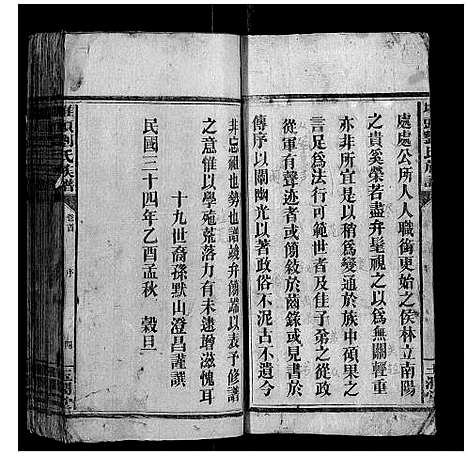 處處公所人人職銜更始之侯林立南陽
之貴奚榮若盡弁髦視之以爲無關輕重
亦非所宜是以稍爲變通於族中碩果之
言足爲法行可範世者及佳子弟之從政
從軍有聲迹者或簡敘於齒錄或見書於
傳序以闡幽光以著政俗不泥古不遺今
非忘祖也旁也譜竣弁簡端以表予修譜
之意惟以學殖荒落力有未逮增滋愧耳
十九世裔孫默山澄昌謹譔
民國三十四年乙酉孟秋 穀旦
頭劉氏族譜
卷首
序
四